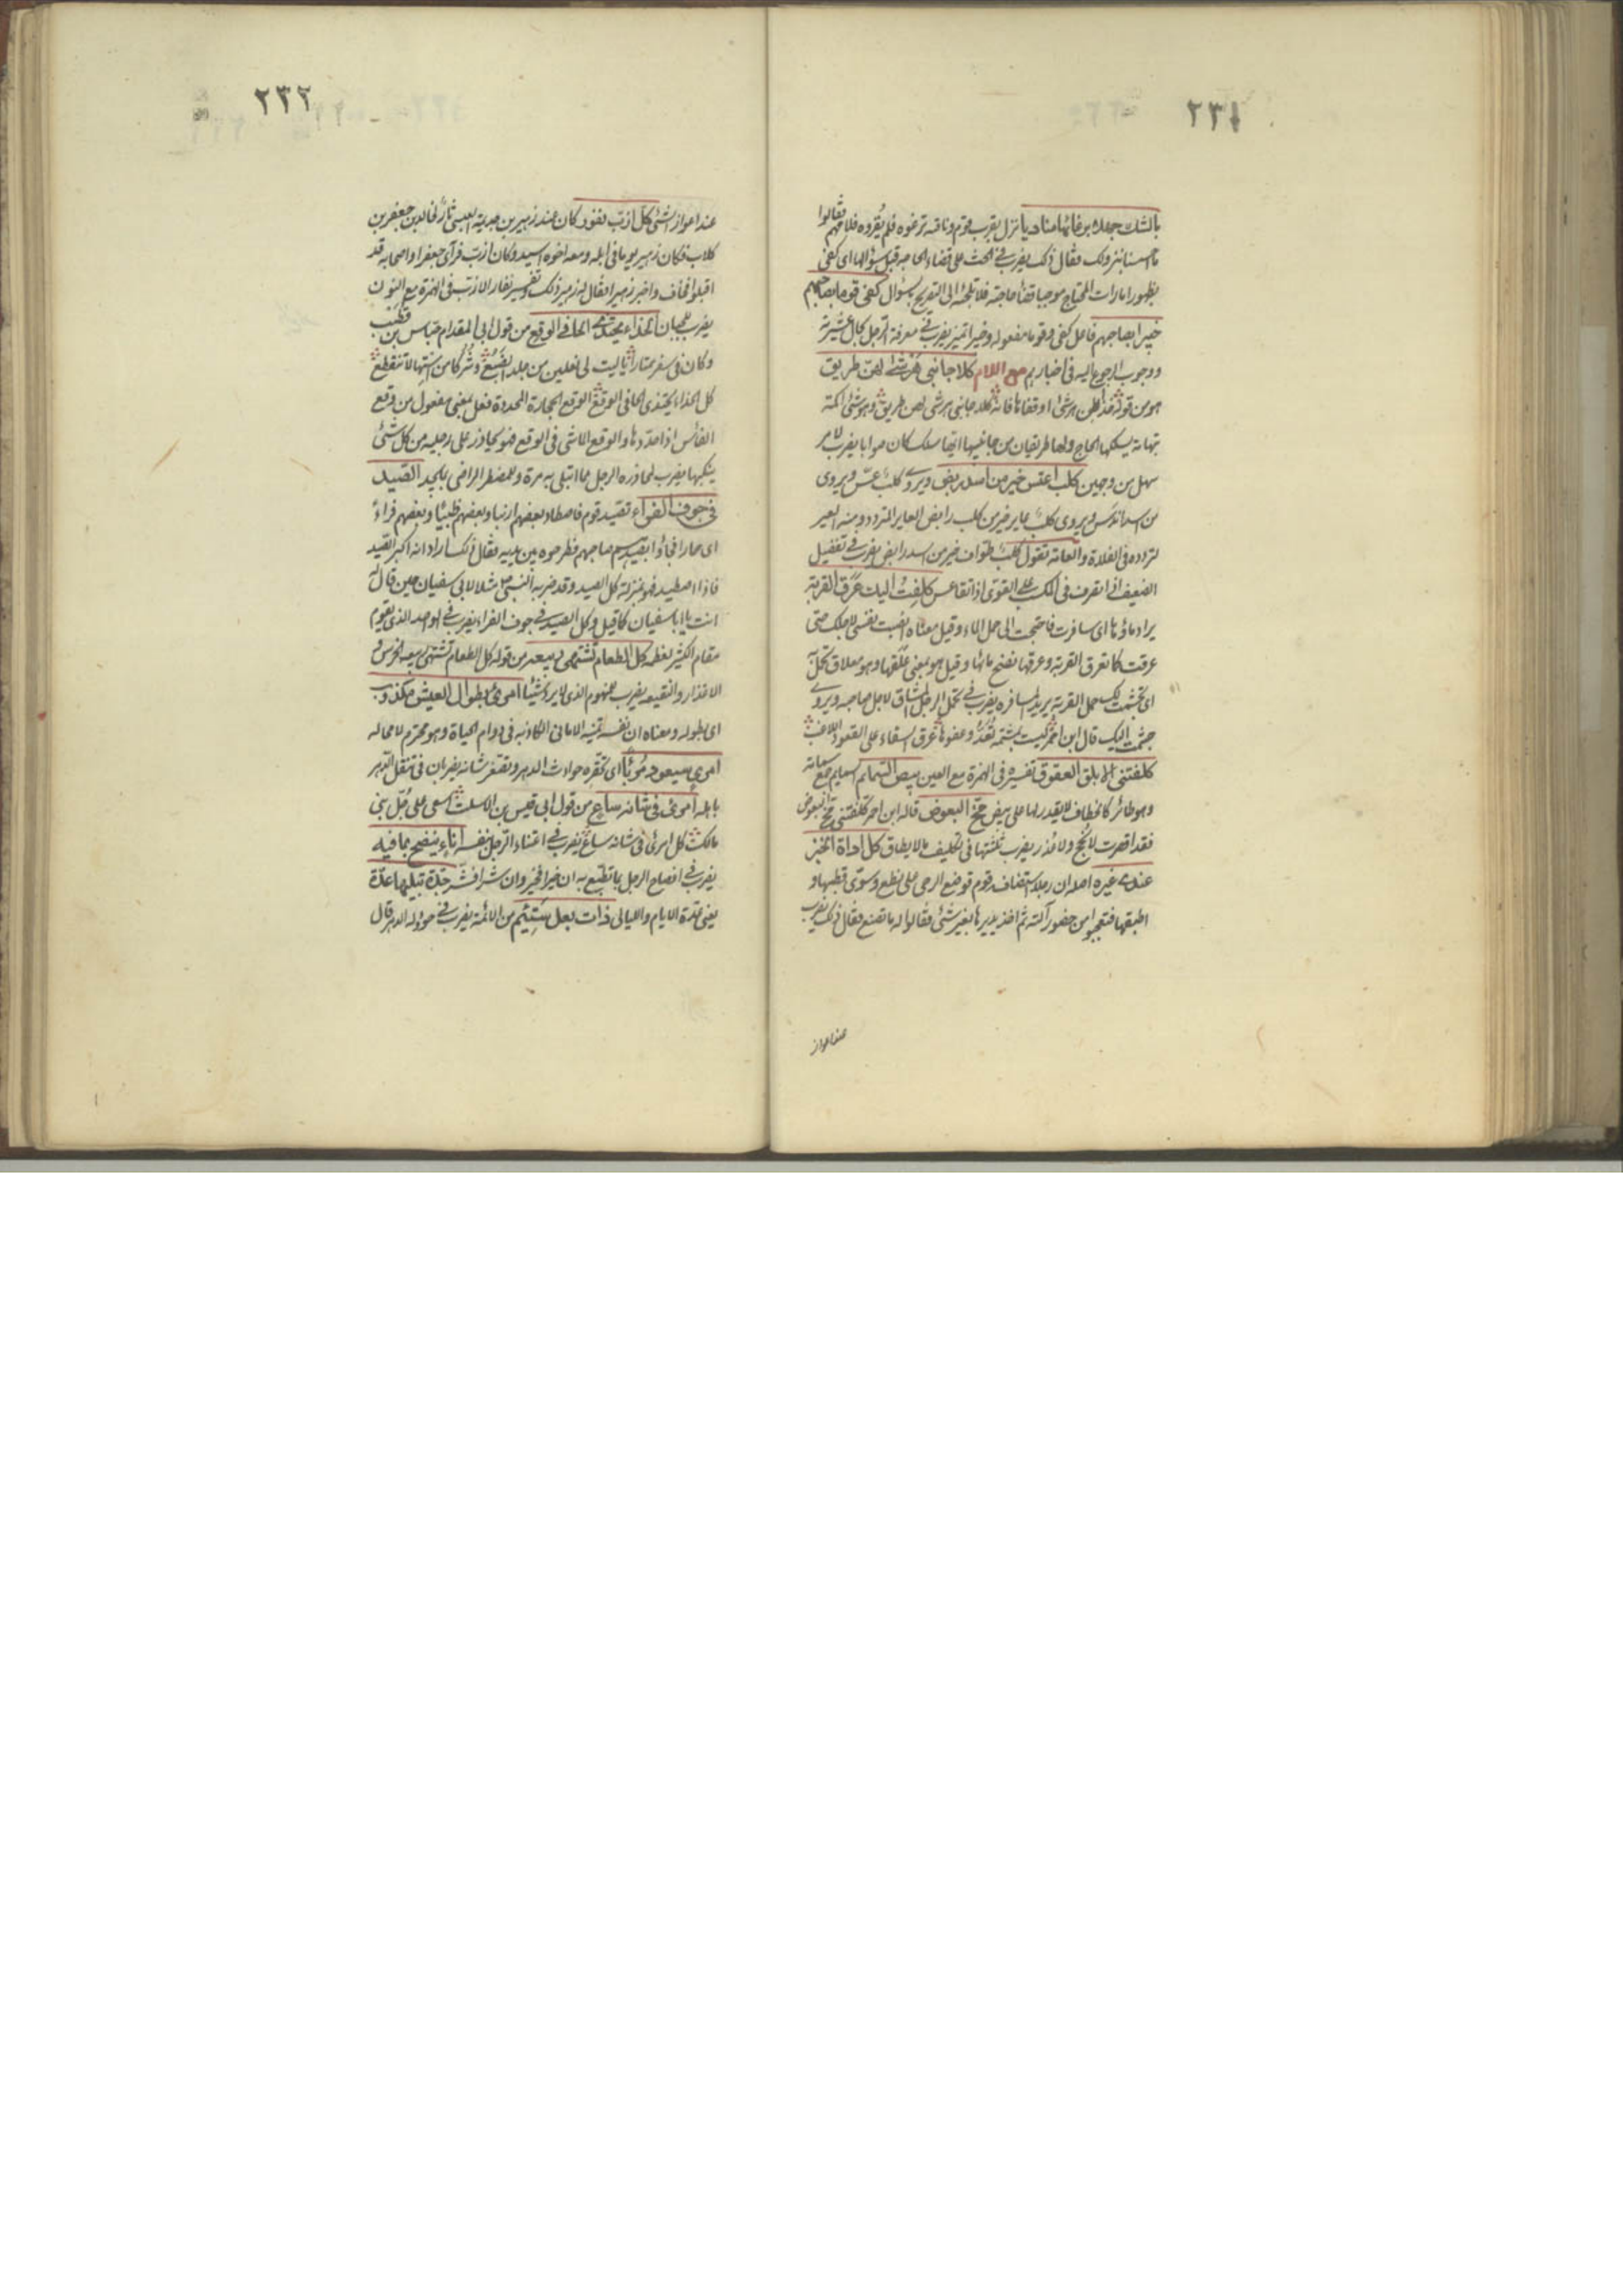 ٢٣١
بالشك جهله برغائها مناديا نزل بقرب قوم وناقته ترغو فلم يقروه فلامهم فقالوا
ما احسسنا بنزولك فقال ذلك يضرب في الحث على قضاء الحاجة قبل سؤالها اى كفى
بظهور امارات المحتاج موجبا قضاء حاجته فلا تلجئه الى التصريح بسؤال كفى قوما بصاحبهم
خبيرا بصاحبهم فاعل كفى وقوما مفعوله وخبيرا تميز يضرب في معرفة الرجل بحال عشيرته
ووجوب الرجوع اليه في اخبارهم مع اللام كلا جانبى هرشى لهن طريق
هو من قوله خذا بطن هرشى او قفاها فانه كلا جانبى هرشى لهن طريق وهرشى اكمة
بتهامة يسلكها الحاج ولها طريقان من جانبيها ايها سلك كان صوابا يضرب لامر
سهل من وجهين كلب اعتس خير من اسد ربض ويروى كلب عس ويروى
من اسد اندس ويروى كلب عاير خير من كلب رابض العاير المتردد ومنه العير
لتردده في الفلاة والعامة تقول كلب طواف خير من اسد رابض يضرب في تفضيل
الضعيف اذا تصرف في الكسب على القوى اذا تقاعس كلفت اليك عرق القربة
يراد ماؤها اى سافرت فاحتجت الى حمل الماء وقيل معناه اتعبت نفسى لاجلك حتى
عرقت كما تعرق القربة وعرقها نضح مائها وقيل هو بمعنى علقها وهو معلاق تحمل
اى تجشمت لك حمل القربة يريد المسافرة يضرب في تحمل الرجل المشاق لاجل صاحبه ويروى
جشمت اليك قال ابن احمر ليست بمشتمة تعد وعفوها عرق السقاء على القعود اللاغب
كلفتنى الابلق العقوق تفسيره في الهمزة مع العين بيض السمائم السمايم جمع سمامة
وهو طائر كالخطاف لا يقدر لها على بيض مخ البعوض قاله ابن احمر كلفتنى مخ البعوض
فقد اقصرت لا نجح ولا عذر يضرب ثلثتها في تكليف ما لا يطاق كل اداة الخبز
عندى غيره اصله ان رجلا استضاف قوم فوضع الرحى على نطع وسوى قطبها و
اطبقها فتعجبوا من حضور آلته ثم اخذ يديرها بغير شئ فقالوا له ما تصنع فقال ذلك يضرب
عند اعواز
٢٣٢
عند اعواز الشئ كل ازب نفور كان عند زهير بن جذيمة العبسى ثار لخالد بن جعفر بن
كلاب فكان زهير يوما في ابله ومعه اخوه اسيد وكان ازب فرآى جعفرا واصحابه قد
اقبلوا فخاف واخبر زهيرا فقال له زهير ذلك وتفسير نفار الازب في الهمزة مع النون
يضرب للجبان الحذاء يحتذى الحافى الوقع من قول ابى المقدام جساس بن قطيب
وكان في سفر ممتارا ياليت لى نعلين من جلد الضبع وشركا من استها لا تنقطع
كل الحذاء يحتذى الحافى الوقع الوقع الحجارة المحددة فعل بمعنى مفعول من وقع
الفأس اذا حددها والوقع الماشى في الوقع فهو يحاذر على رجليه من كل شئ
ينكبها يضرب لمحاذرة الرجل مما ابتلى به مرة وللمضطر الراضى بما يجد الصيد
في جوف الفراء تقيد قوم فاصطاد بعضهم ارنبا وبعضهم ظبيا وبعضهم فراءً
اى حمارا فجاؤا بصيدهم صاحبهم فطرحوه بين يديه فقال ذلك اراد انه اكبر الصيد
فاذا اصطيد فهو بمنزلة كل الصيد وقد ضربه النبى ص مثلا لابى سفيان حين قال له
انت يا ابا سفيان كما قيل كل الصيد في جوف الفراء يضرب في الواحد الذى يقوم
مقام الكثير لعظمه كل الطعام تشتهى ربيعه من قوله كل الطعام تشتهى ربيعه الخرس و
الاعذار والنقيعه يضرب للمنهوم الذى لا يرد شيئا امرئ بطوال العيش مكذوب
اى بطوله ومعناه ان نفسه تمنيه الامانى الكاذبه في دوام الحياة وهو مخترم لا محالة
امرئ سيعود مريئا اى تحقره حوادث الدهر وتصغر شانه يضربان في تنقل الدهر
باهله امرئ في شانه ساع من قول ابى قيس بن الاسلت اسعى على جل بنى
مالك كل امرئ في شانه ساع يضرب في اعتناء الرجل بنفسه اناء ينضح بما فيه
يضرب في افصاح الرجل بما تطبع به ان خيرا فخير وان شرا فشر جدة تبليها عدة
يعنى عدة الايام والليالى ذات بعل ستئيم من الائمة يضرب في حؤولة الدهر قال